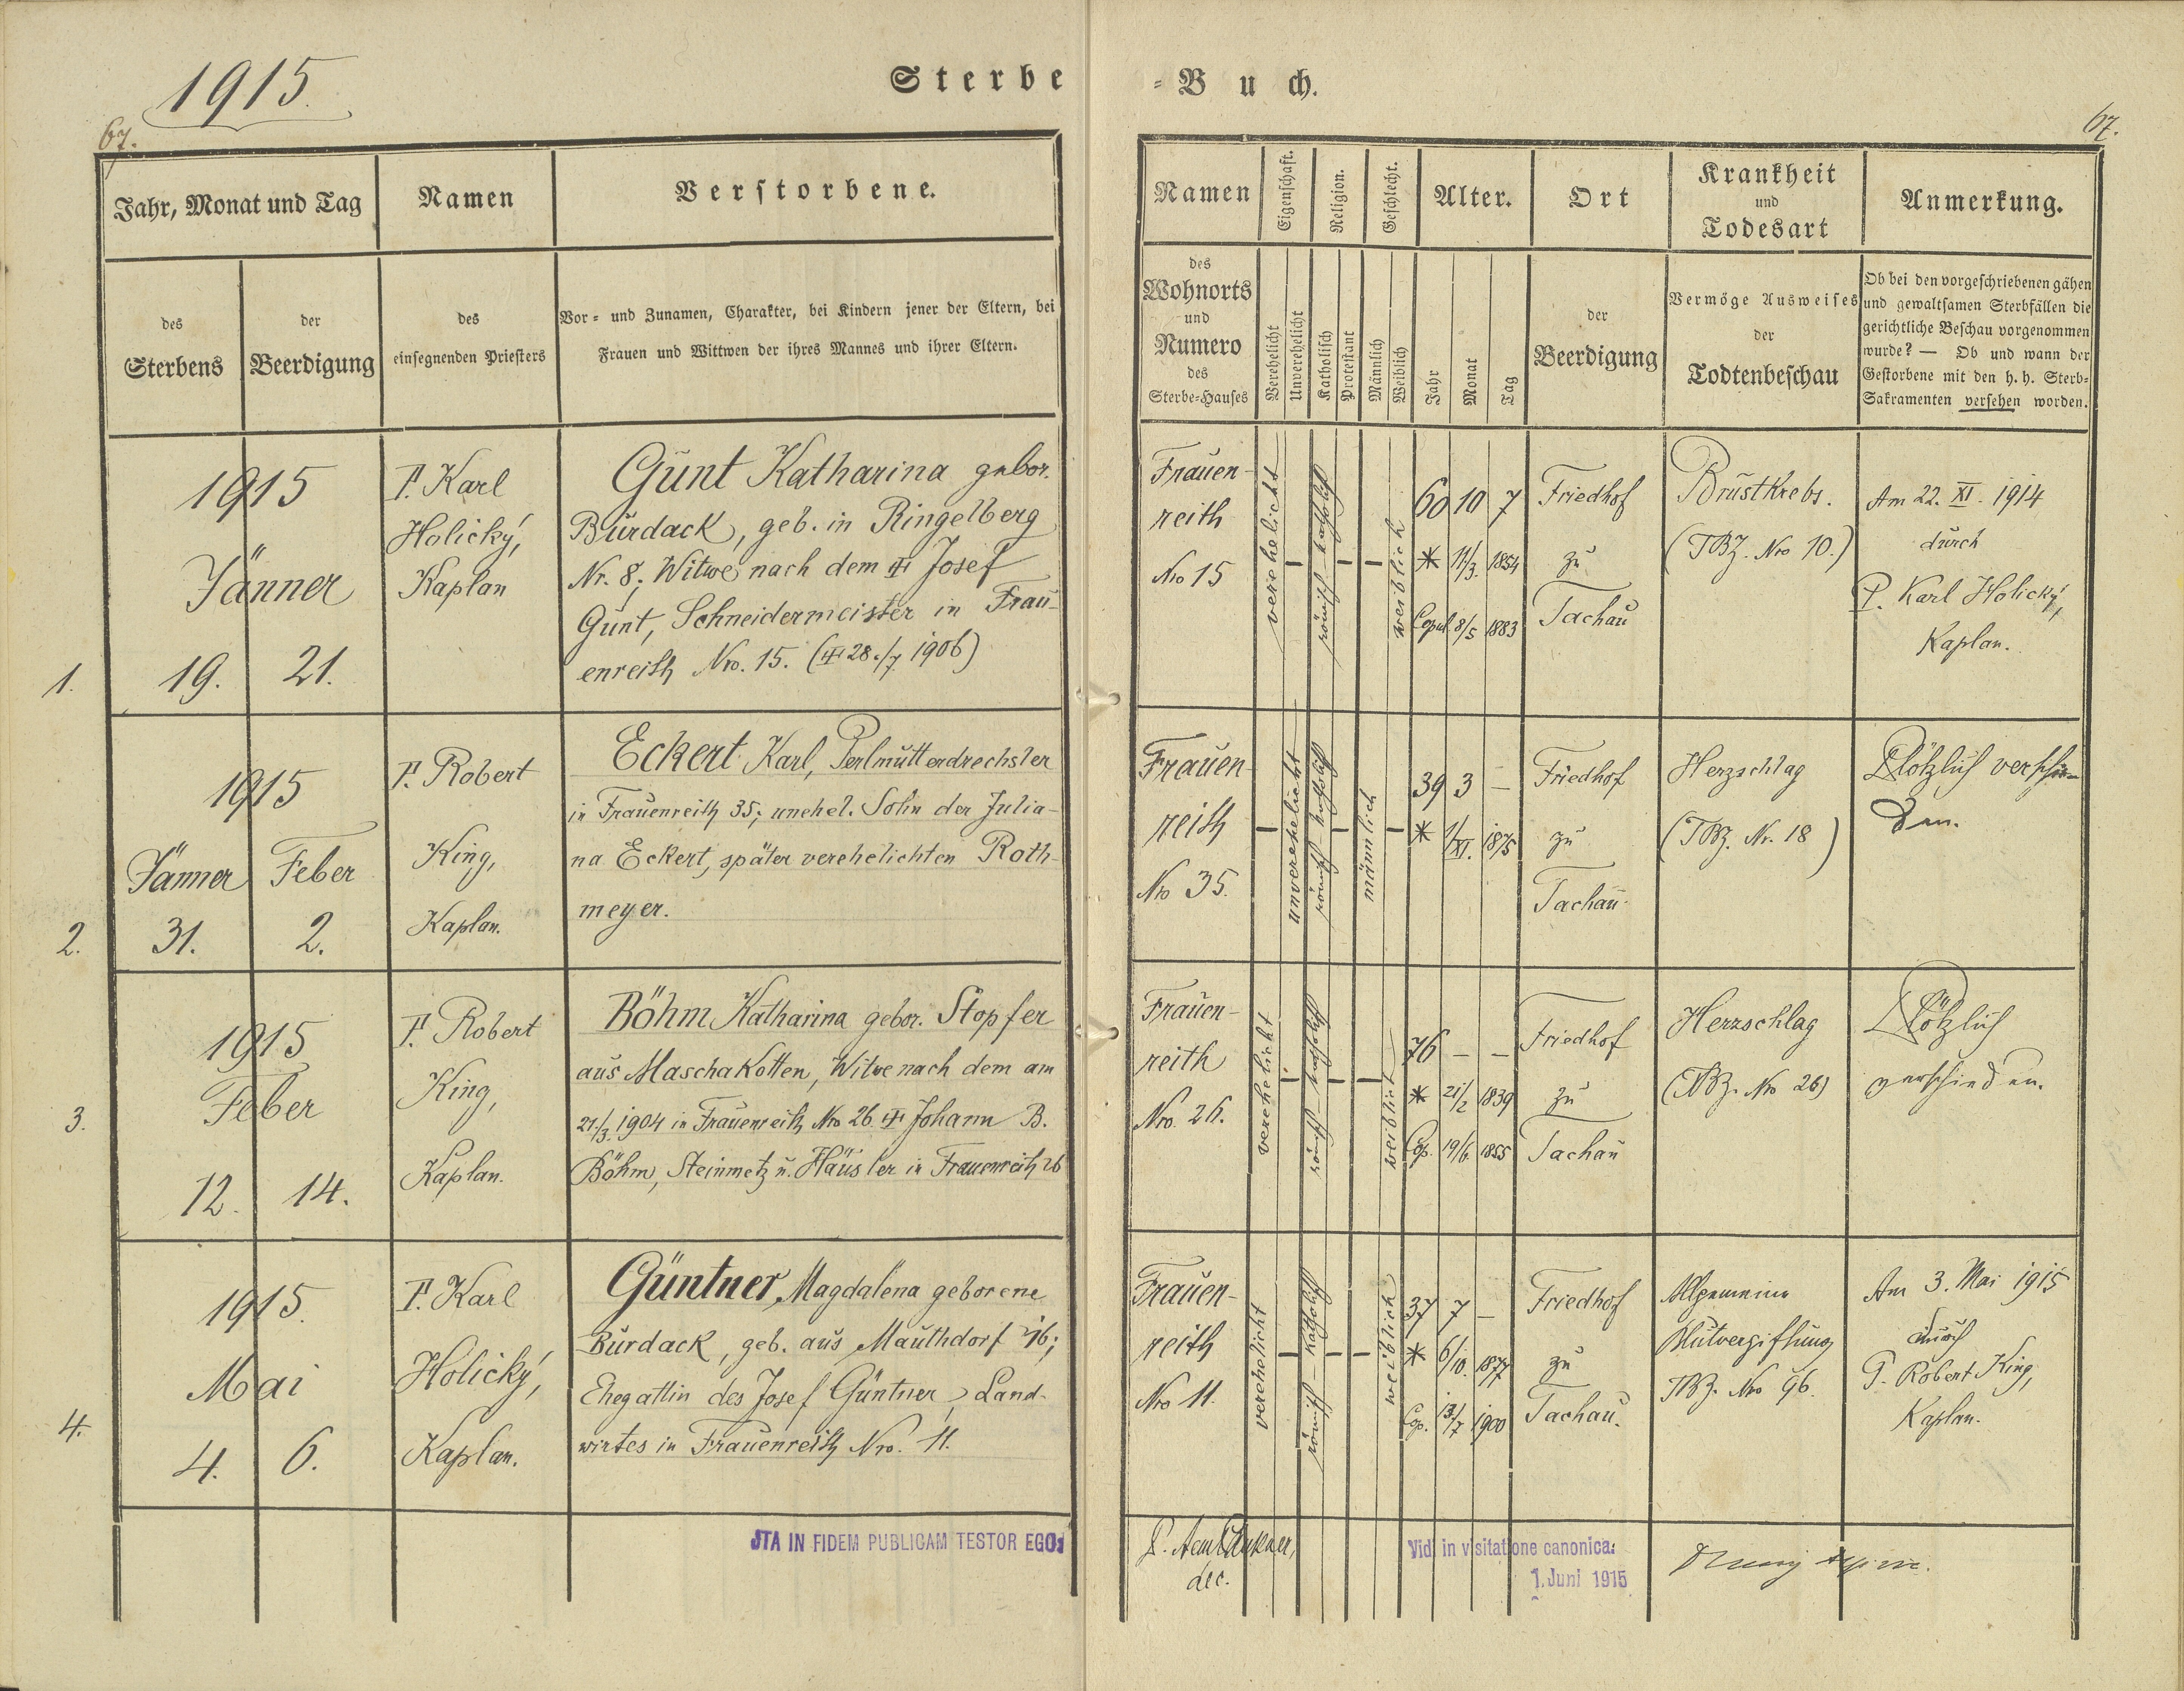 1915.
Sterbe
= Buch.
67.
67.
Jahr, Monat und Tag
Namen
Verstorbene.
des
Sterbens
der
Beerdigung
des
einsegnenden Priesters
Vor= und Zunamen, Charakter, bei Kindern jener der Eltern, bei
Frauen und Wittwen der ihres Mannes und ihrer Eltern.
Namen
Eigenschaft.
Religion.
Geschlecht.
Alter.
Ort
Krankheit
und
Todesart
Anmerkung.
des
Wohnorts
und
Numero
des
Sterbe=Hauses
Verehelicht
Unverehelicht
Katholisch
Protestant
Männlich
Weiblich
Jahr
Monat
Tag
der
Beerdigung
Vermöge Ausweises
der
Todtenbeschau
Ob bei den vorgeschriebenen gähen
und gewaltsamen Sterbfällen die
gerichtliche Beschau vorgenommen
wurde? — Ob und wann der
Gestorbene mit den h. h. Sterb=
Sakramenten versehen worden.
1.
1915
Jänner
19. 21.
P. Karl
Holický,
Kaplan
Günt Katharina gebor.
Burdack, geb. in Ringelberg
Nr. 8; Witwe nach dem † Josef
Günt, Schneidermeister in Frau-
enreith Nro. 15. († 28./7 1906)
Frauen-
reith
Nro 15
verehelicht
–
römisch – katholisch
–
–
weiblich
60 10 7
* 11/3. 1854
Copul 8/5 1883
Friedhof
zu
Tachau
Brustkrebs.
(TBZ. Nro 10.)
Am 22. XI. 1914
durch
P. Karl Holický,
Kaplan.
2.
1915
Jänner Feber
31. 2.
P. Robert
King,
Kaplan.
Eckert Karl, Perlmutterdrechsler
in Frauenreith 35; unehel. Sohn der Julia-
na Eckert, später verehelichten Roth-
meyer.
Frauen-
reith
Nro 35.
–
unverehelicht
römisch – katholisch
–
männlich
–
39 3 –
* 1/XI. 1875
Friedhof
zu
Tachau.
Herzschlag
(TBZ. Nr. 18)
Plötzlich verschie-
den.
3.
1915
Feber
12. 14.
P. Robert
King,
Kaplan.
Böhm Katharina gebor. Stopfer
aus Maschakotten, Witwe nach dem am
21./3. 1904 in Frauenreith Nro 26 † Johann B.
Böhm, Steinmetz u. Häusler in Frauenreith 26
Frauen-
reith
Nro. 26.
verehelicht
–
römisch – katholisch
–
–
weiblich
76 – –
* 21/2 1839
Cop. 19/6. 1855
Friedhof
zu
Tachau
Herzschlag
(TBZ. Nro 26)
Plötzlich
verschieden.
4.
1915.
Mai
4. 6.
P. Karl
Holický,
Kaplan.
Güntner, Magdalena geborene
Burdack, geb. aus Mauthdorf 46;
Ehegattin des Josef Güntner, Land-
wirtes in Frauenreith Nro. 11.
Frauen-
reith
Nro 11.
verehelicht
–
römisch – katholisch
–
–
weiblich
37 7 –
* 6/10. 1877
Cop. 13/7 1900
Friedhof
zu
Tachau.
Allgemeine
Blutvergiftung
TBZ. Nro 96.
Am 3. Mai 1915
durch
P. Robert King,
Kaplan.
JTA IN FIDEM PUBLICAM TESTOR EGO:
dec.
Vidi in visitatione canonica:
1. Juni 1915